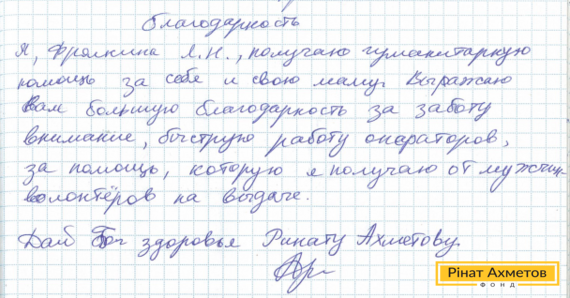 благодарность
Я, Фролкина Л.Н., получаю гуманитарную
помощь за себя и свою маму. Выражаю
Вам большую благодарность за заботу
внимание, быструю работу операторов,
за помощь, которую я получаю от мужчин
волонтёров на выдаче.
Дай Бог здоровья Ринату Ахметову.
Рінат Ахметов
ФОНД